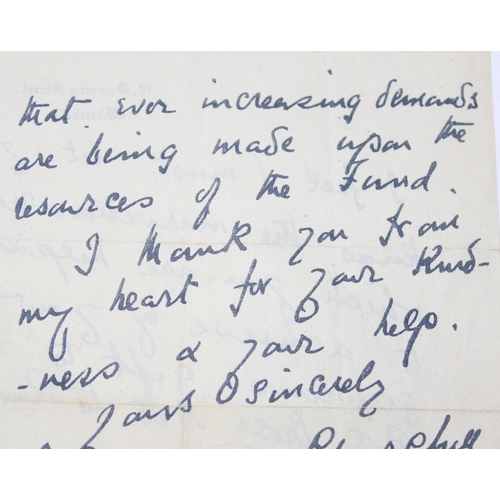 that ever increasing demands
are being made upon the
resources of the Fund.
I thank you from
my heart for your kind-
-ness & your help.
Yours sincerely